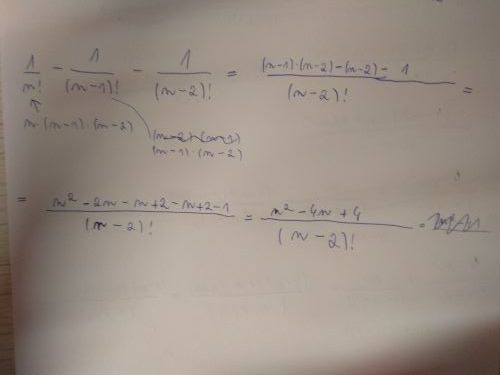 1/n! - 1/(n-1)! - 1/(n-2)! = ((n-1)·(n-2)-(n-2)-1)/(n-2)! =
n·(n-1)·(n-2)
(n-1)·(n-2)
= (n² -2n -n+2 -n+2-1)/(n-2)! = (n² -4n +4)/(n-2)! =